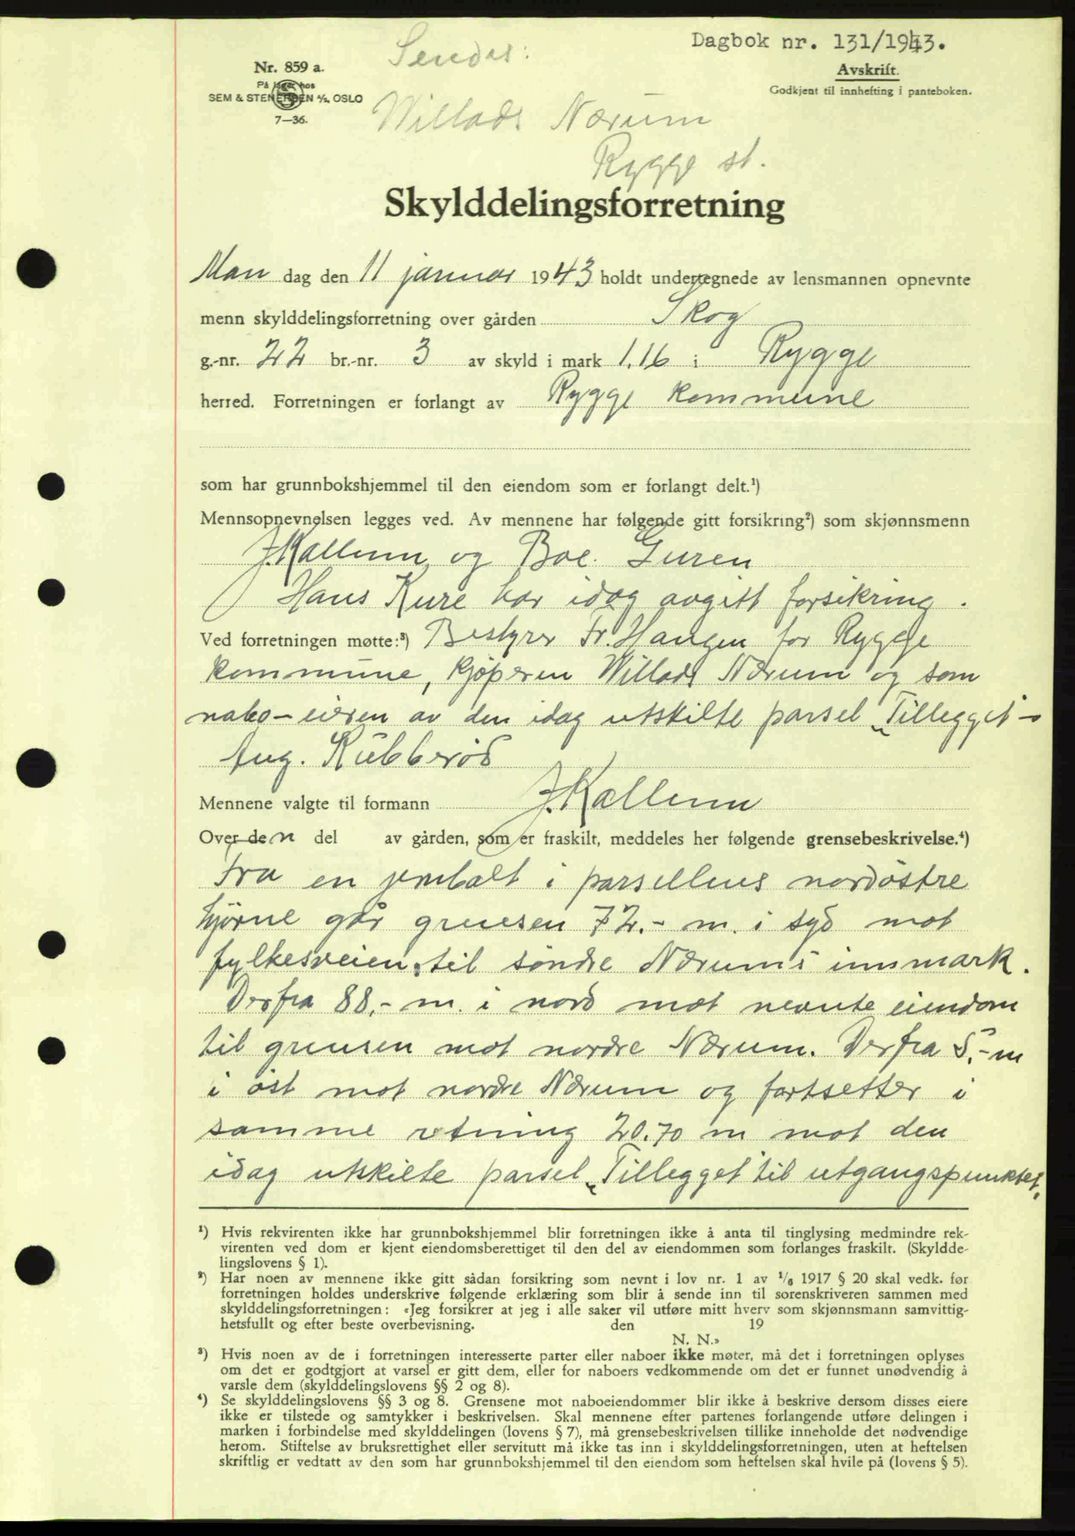 Dagbok nr. 131/1943.
Sendes:
Nr. 859 a.
På lager hos
SEM & STENERSEN A/S. OSLO
7—36.
Avskrift.
Godkjent til innhefting i panteboken.
Willads Nærum
Rygge st.
Skylddelingsforretning
Man dag den 11 januar 1943 holdt undertegnede av lensmannen opnevnte
menn skylddelingsforretning over gården Skog
g.-nr. 22 br.-nr. 3 av skyld i mark 1.16 i Rygge
herred. Forretningen er forlangt av Rygge kommune
som har grunnbokshjemmel til den eiendom som er forlangt delt.¹)
Mennsopnevnelsen legges ved. Av mennene har følgende gitt forsikring²) som skjønnsmenn
J. Kallum og Boe Guren
Hans Kure har idag avgitt forsikring.
Ved forretningen møtte:³) Bestyrer Fr. Haugen for Rygge
kommune, kjøperen Willads Nærum og som
nabo-eieren av den idag utskilte parsel „Tillegget"-
Aug. Kubberød
Mennene valgte til formann J. Kallum
Over den del av gården, som er fraskilt, meddeles her følgende grensebeskrivelse.⁴)
Fra en jernbolt i parsellens nordøstre
hjørne går grensen 72.- m. i syd mot
fylkesveien, til søndre Nærums innmark.
Derfra 88.- m. i nord mot nevnte eiendom
til grensen mot nordre Nærum. Derfra 5.- m
i øst mot nordre Nærum og fortsetter i
samme retning 20.70 m mot den
idag utskilte parsel „Tillegget" til utgangspunktet.
¹) Hvis rekvirenten ikke har grunnbokshjemmel blir forretningen ikke å anta til tinglysing medmindre rek-
virenten ved dom er kjent eiendomsberettiget til den del av eiendommen som forlanges fraskilt. (Skyldde-
lingslovens § 1).
²) Har noen av mennene ikke gitt sådan forsikring som nevnt i lov nr. 1 av 1/6 1917 § 20 skal vedk. før
forretningen holdes underskrive følgende erklæring som blir å sende inn til sorenskriveren sammen med
skylddelingsforretningen: «Jeg forsikrer at jeg i alle saker vil utføre mitt hverv som skjønnsmann samvittig-
hetsfullt og efter beste overbevisning. den 19
N. N.»
³) Hvis noen av de i forretningen interesserte parter eller naboer ikke møter, må det i forretningen oplyses
om det er godtgjort at varsel er gitt dem, eller for naboers vedkommende om det er funnet unødvendig å
varsle dem (skylddelingslovens §§ 2 og 8).
⁴) Se skylddelingslovens §§ 3 og 8. Grensene mot naboeiendommer blir ikke å beskrive dersom disses eiere
ikke er tilstede og samtykker i beskrivelsen. Skal mennene efter partenes forlangende utføre delingen i
marken i forbindelse med skylddelingen (lovens § 7), må grensebeskrivelsen tillike inneholde det nødvendige
herom. Stiftelse av bruksrettighet eller servitutt må ikke tas inn i skylddelingsforretningen, uten at heftelsen
skriftlig er vedtatt av den som har grunnbokshjemmel til den eiendom som heftelsen skal hvile på (lovens § 5).